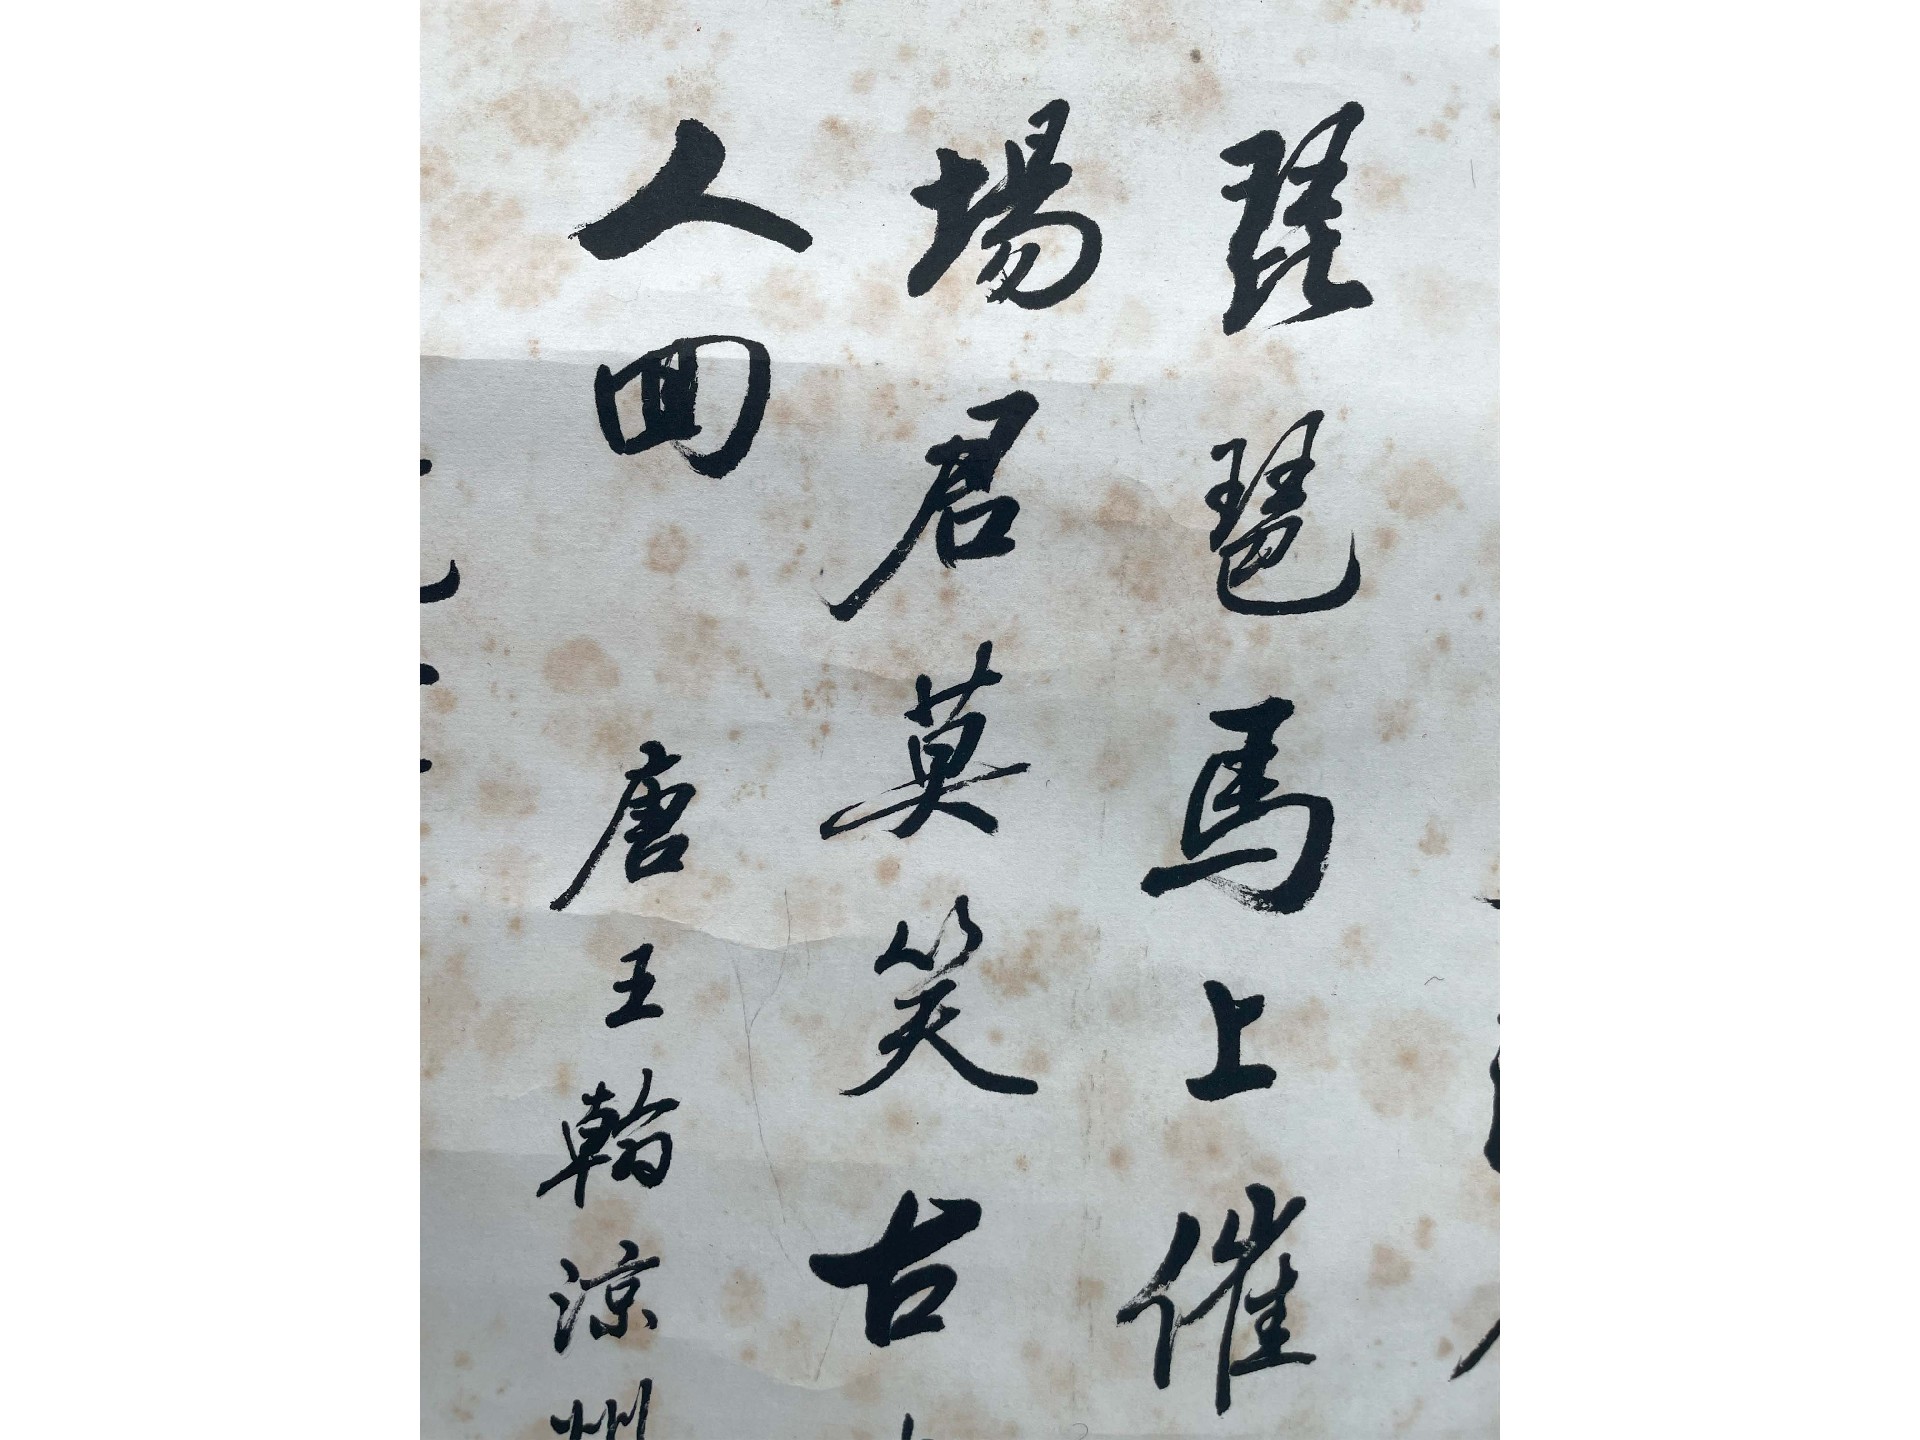 琵琶馬上催
場君莫笑古
人回
唐王翰涼州